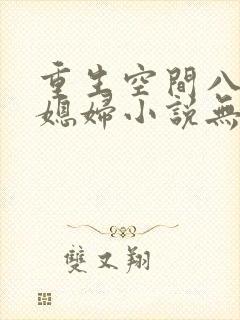 重生空間八
媳婦小説無
雙又翔